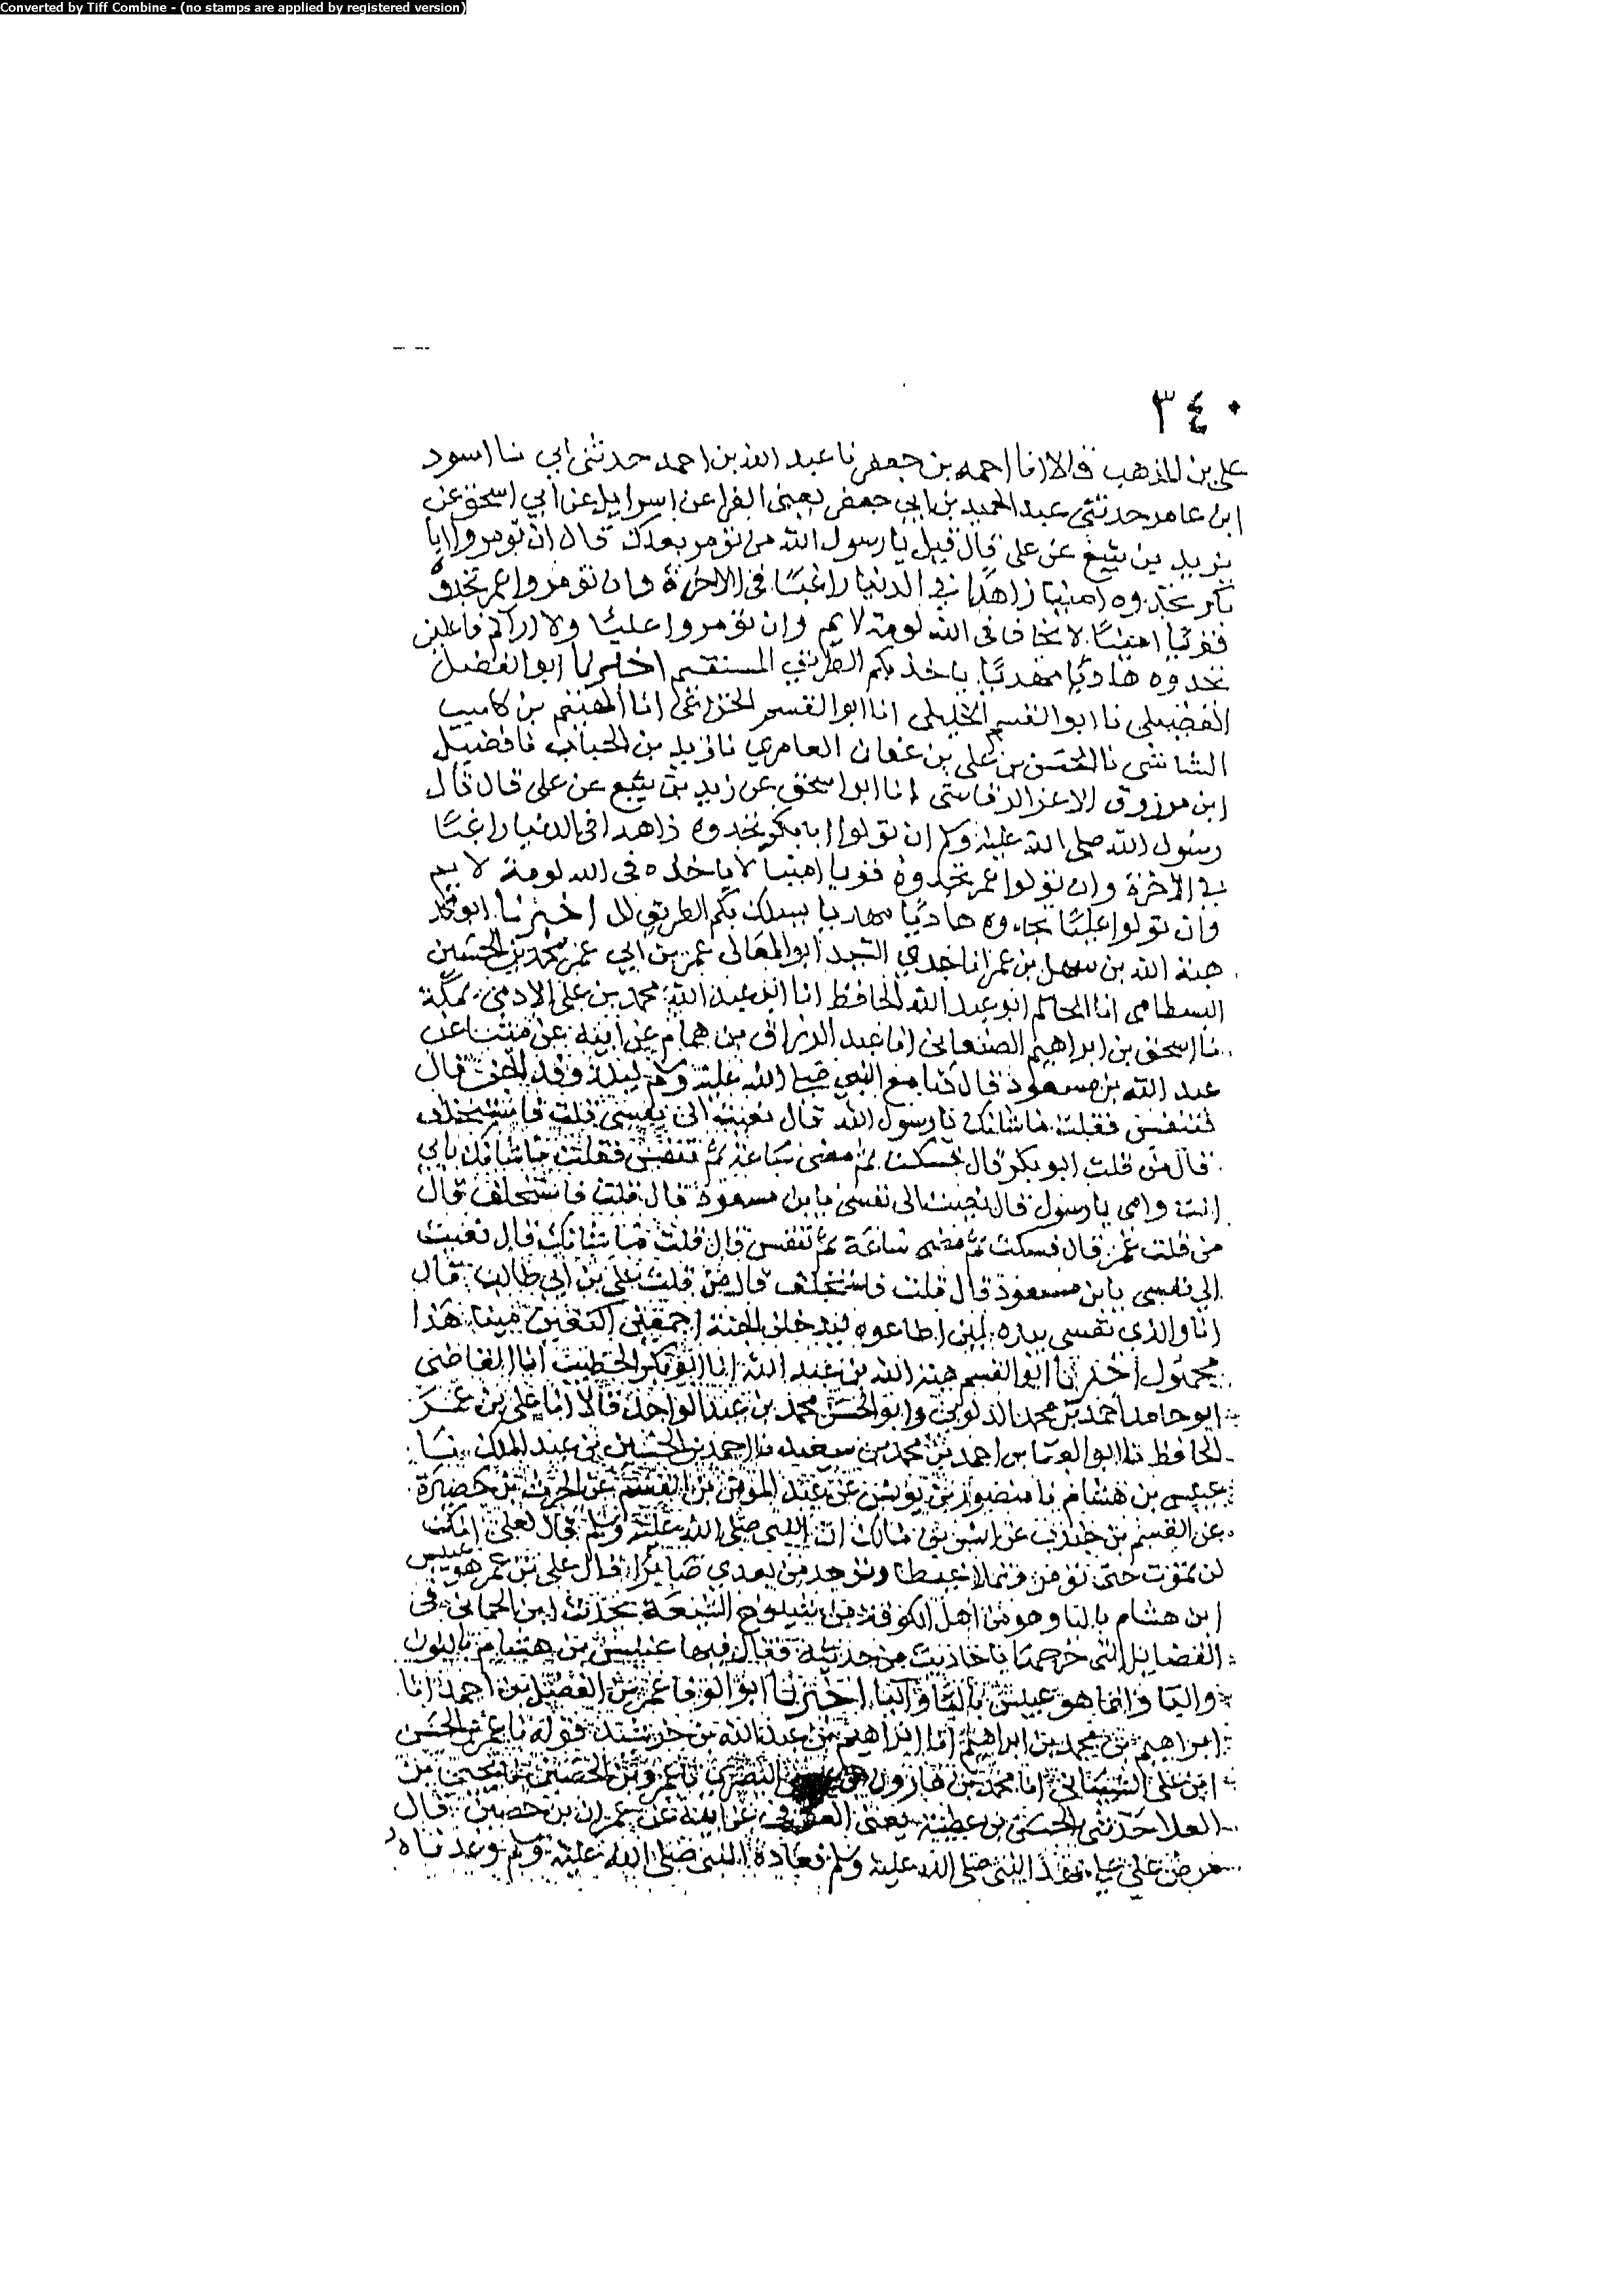 Converted by Tiff Combine - (no stamps are applied by registered version)
٣٤٠
على بن المذهب قالا انا احمد بن جعفر نا عبد الله بن احمد حدثنى ابي نا اسود
ابن عامر حدثني عبد الحميد بن ابي جعفر يعنى الفرا عن اسرايل عن ابي اسحق عن
زيد بن يثيع عن على قال قيل يا رسول الله من نومر بعدك قال ان تومروا ابا
بكر تجدوه امينا زاهدا في الدنيا راغبا في الاخرة وان تومروا عمر تجدوه
قويا امينا لا يخاف في الله لومة لايم وان تومروا عليا ولا اراكم فاعلين
تجدوه هاديا مهديا ياخذ بكم الطريق المستقيم اخبرنا ابو الفضل
الفضيلى نا ابو القسم الخليلى انا ابو القسم الخزاعى انا الهيثم بن كليب
الشاشي نا الحسن بن على بن عفان العامري نا زيد بن الحباب نا فضيل
ابن مرزوق الاغر الرقاشى انا ابو اسحق عن زيد بن يثيع عن على قال قال
رسول الله صلى الله عليه وسلم ان تولوا ابا بكر تجدوه زاهدا في الدنيا راغبا
في الاخرة وان تولوا عمر تجدوه قويا امينا لا ياخذه في الله لومة لايم
وان تولوا عليا تجدوه هاديا مهديا يسلك بكم الطريق اخبرنا ابو محمد
هبة الله بن سهل بن عمر انا جدي السيد ابو المعالى عمر بن ابي عمر محمد بن الحسين
البسطامى انا الحاكم ابو عبد الله الحافظ انا ابو عبد الله محمد بن على الادمى بمكة
نا اسحق بن ابراهيم الصنعانى انا عبد الرزاق بن همام عن ابيه عن مينا عن
عبد الله بن مسعود قال كنا مع النبي صلى الله عليه وسلم ليلة وفد الجن قال
فتنفس فقلت ما شانك يا رسول الله قال نعيت الى نفسي قلت فاستخلف
قال من قلت ابو بكر قال فسكت ثم مضى ساعة ثم تنفس فقلت ما شانك بابي
انت وامى يا رسول قال نعيت الى نفسي يا بن مسعود قال قلت فاستخلف قال
من قلت عمر قال فسكت ثم مضى ساعة ثم تنفس قال قلت ما شانك قال نعيت
الى نفسي يا بن مسعود قال قلت فاستخلف قال من قلت على بن ابي طالب قال
اما والذى نفسي بيده لئن اطاعوه ليدخلن الجنة اجمعين اكتعين مينا هذا
مجهول اخبرنا ابو القسم هبة الله بن عبد الله انا ابو بكر الخطيب انا القاضى
ابو حامد احمد بن محمد الدلوي وابو الحسن محمد بن عبد الواحد قالا انا على بن عمر
الحافظ نا ابو العباس احمد بن محمد بن سعيد نا احمد بن الحسين بن عبد الملك نا
عبيس بن هشام نا منصور بن يونس عن عبد المومن بن القسم عن الحرث بن حصيرة
عن القسم بن جندب عن انس بن مالك ان النبي صلى الله عليه وسلم قال لعلى انك
لن تموت حتى تومر وتملا غيظا وتوجد من بعدي صابرا قال على بن عمر هو عبيس
ابن هشام بالبا وهو من اهل الكوفة من شيوخ الشيعة يحدث ابن الحمانى في
الفضايل التى خرجها باحاديث من حديثه فقال فيها عنبس بن هشام بالنون
والبا وانما هو عبيس بالبا واليا اخبرنا ابو الوفا عمر بن الفضل بن احمد انا
ابراهيم بن محمد بن ابراهيم انا ابراهيم بن عبد الله بن خرشيد قوله نا عمر بن الحسن
ابن على الشيبانى انا محمد بن هارون البصري نا عمرو بن الحصين نا يحيى بن
العلا حدثني الحسن بن عطية يعنى العوفى عن ابيه عن عمران بن حصين قال
مرض على عهد النبي صلى الله عليه وسلم فعاده النبي صلى الله عليه وسلم وعدناه